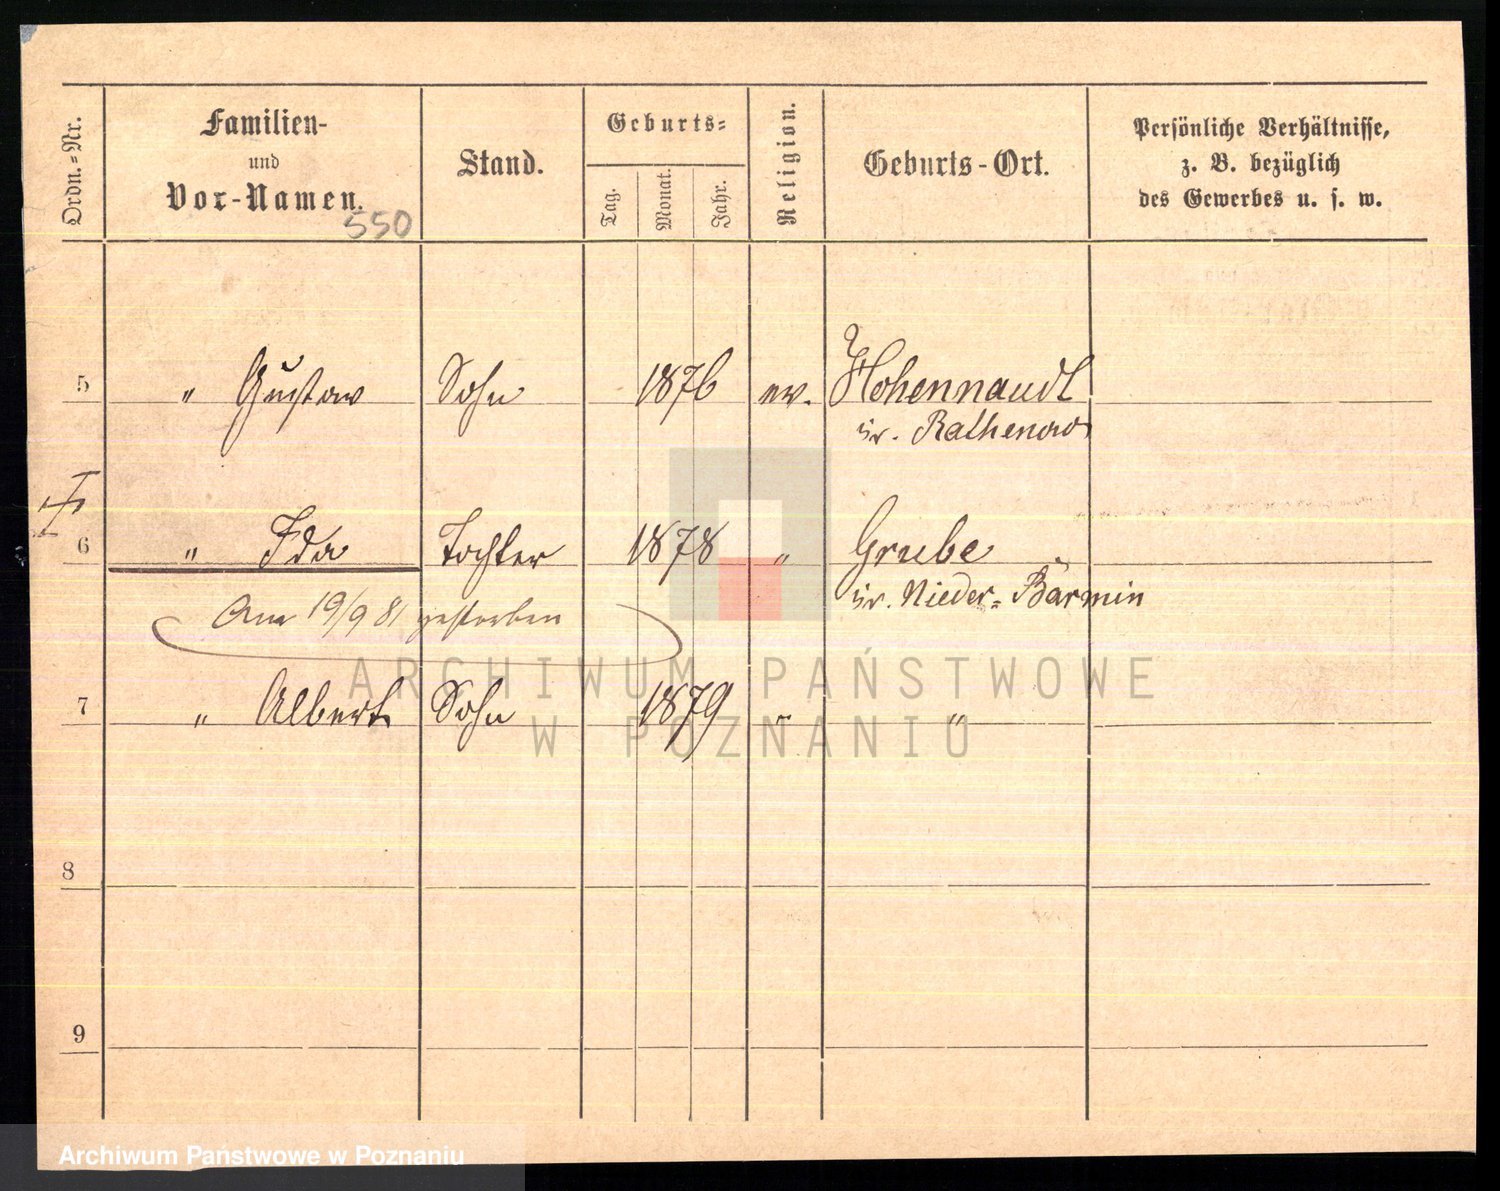 Ordn.-Nr.
Familien-
und
Vor-Namen.
550
Stand.
Geburts-
Tag.
Monat.
Jahr.
Religion.
Geburts-Ort.
Persönliche Verhältnisse,
z. B. bezüglich
des Gewerbes u. s. w.
5 " Gustav Sohn 1876 ev. Hohennaudl
Kr. Rathenow
6 " Ida Tochter 1878 " Grube
Kr. Nieder-Barmin
Am 19/9 81 gestorben
7 " Albert Sohn 1879 " "
8
9
ARCHIWUM PAŃSTWOWE
W POZNANIU
Archiwum Państwowe w Poznaniu